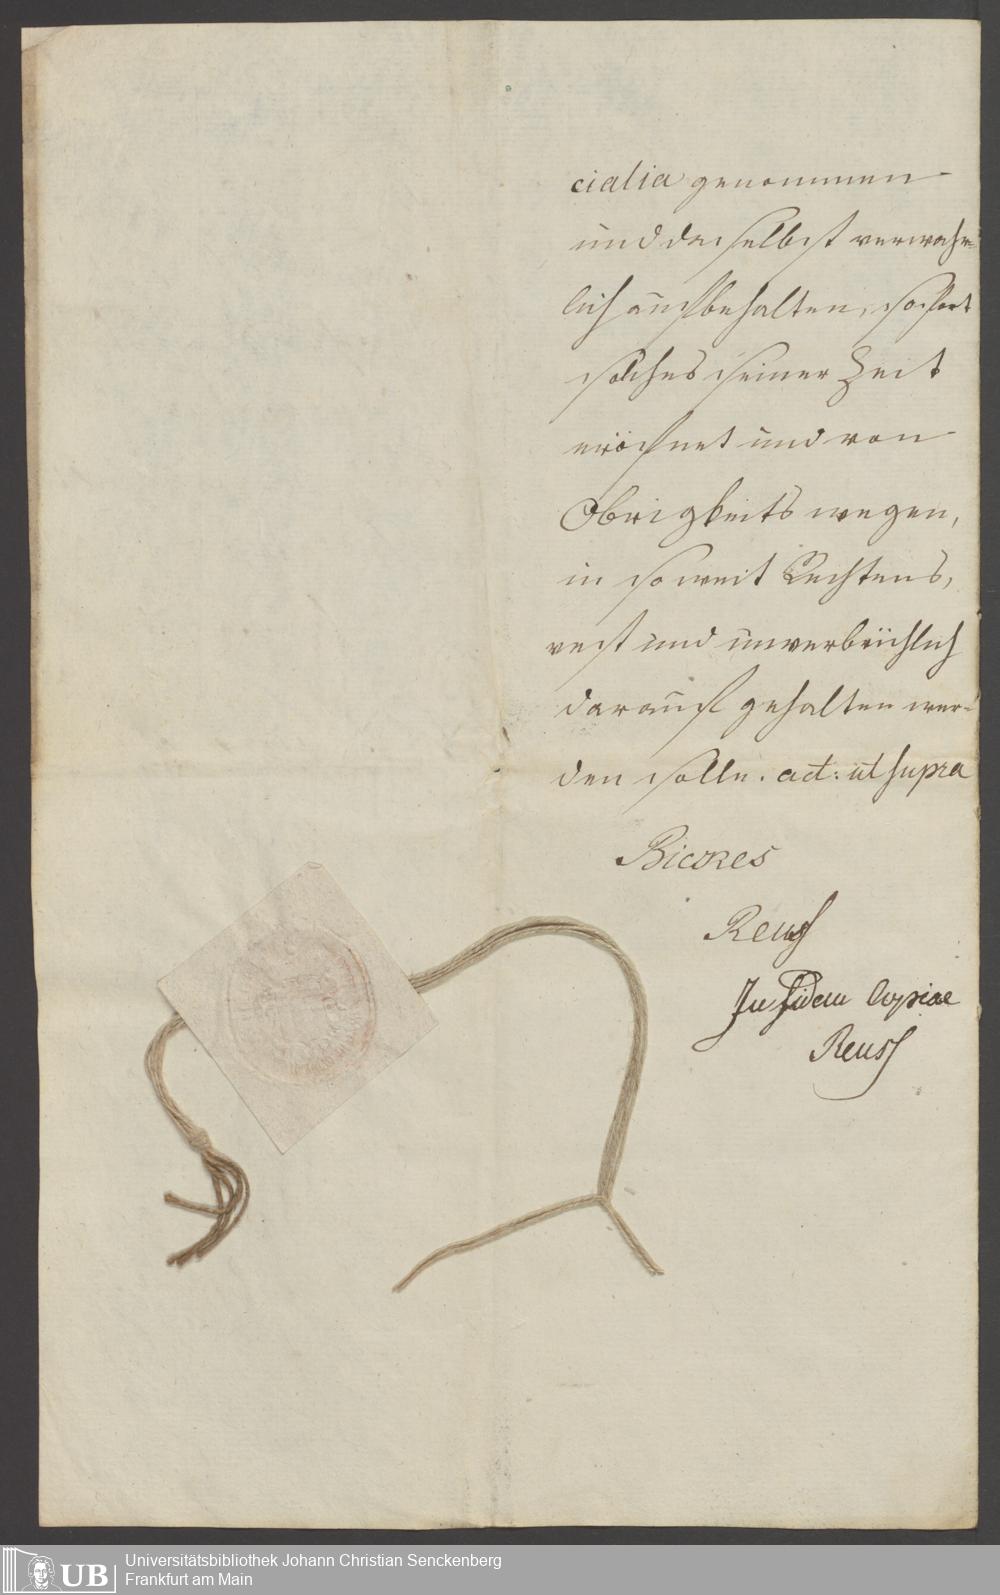 cialia genommen
und daselbst verwahr=
lich aufbehalten, sofort
solches seiner Zeit
eröfnet und von
Obrigkeits wegen,
in so weit Rechtens,
vest und unverbrüchlich
darauf gehalten wer=
den solle. act: ut supra
Bickes
Reuss
In fidem Copiae
Reuss
UB
Universitätsbibliothek Johann Christian Senckenberg
Frankfurt am Main